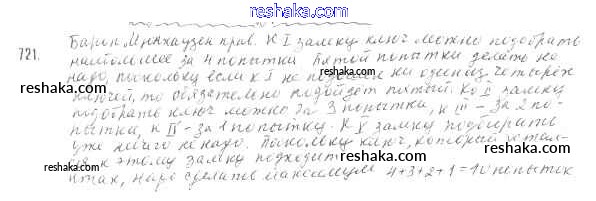 reshaka.com
721. Барон Мюнхаузен прав. К I замку ключ можно подобрать
наибольшее за 4 попытки пятой попытки делать не
надо, поскольку если к I не подошел ни один из четырёх
ключей, то обязательно подойдет пятый. Ко II замку
подобрать ключ можно за 3 попытки, к III - за 2 по-
пытки, к IV - за 1 попытку. К V замку подбирать
уже ничего не надо. Поскольку ключ, который остал-
ся к этому замку подходит.
итак, надо сделать максимум 4+3+2+1=10 попыток
reshaka.com